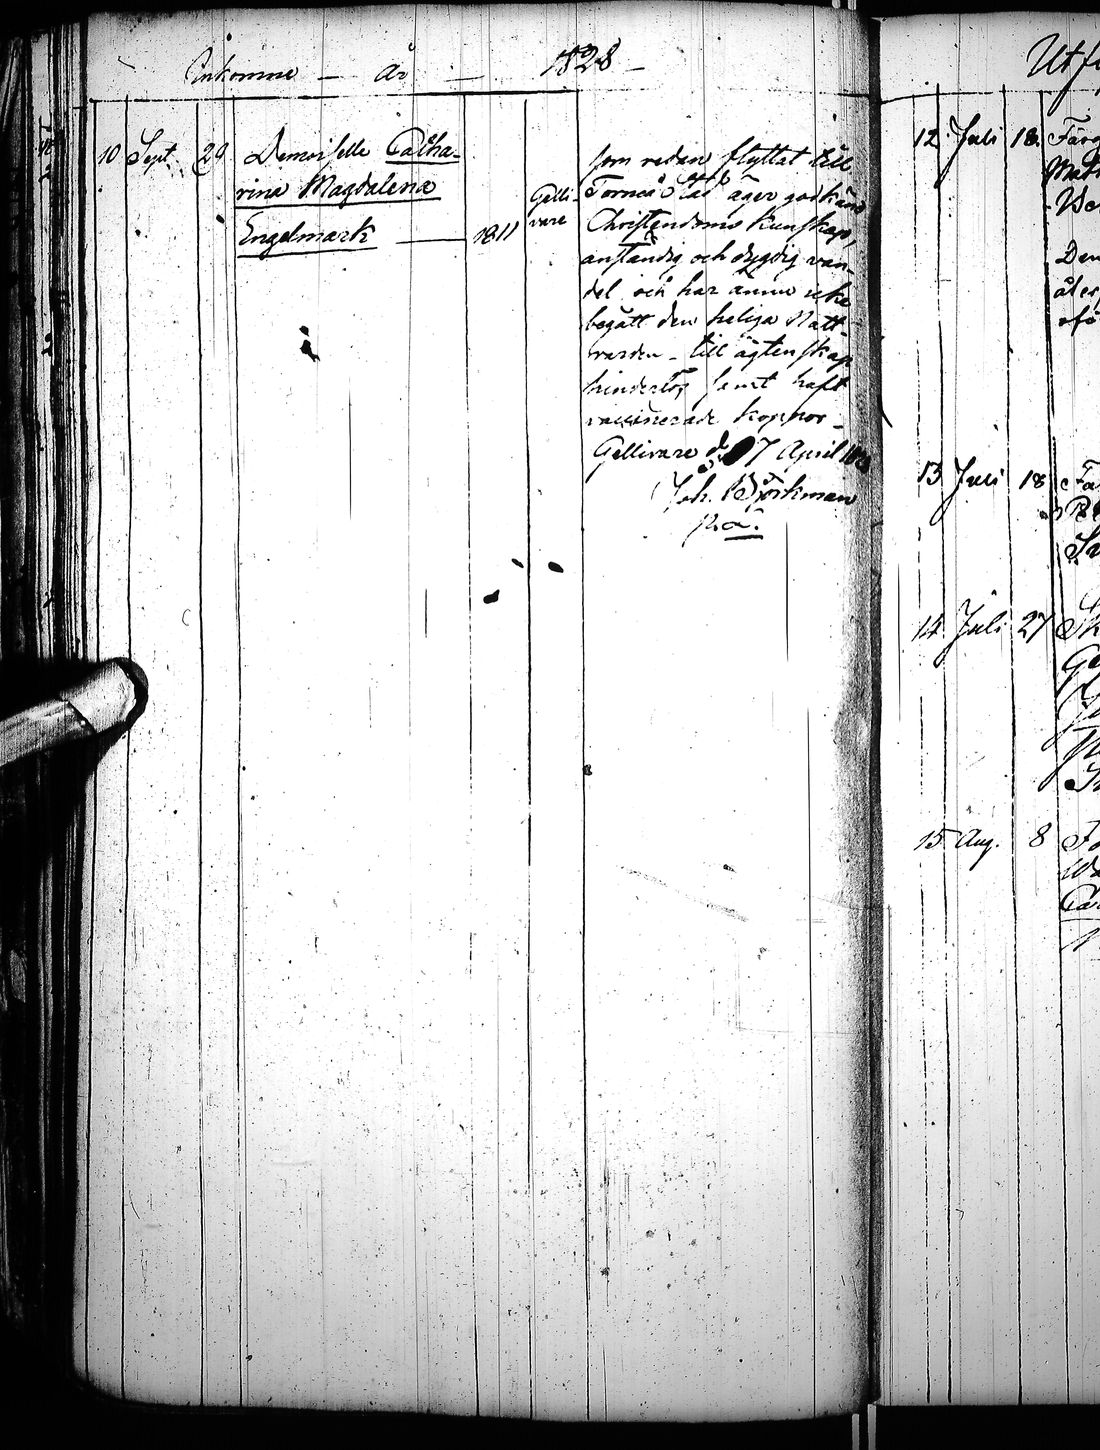 Inkomne — År — 1828 —
10 Sept. 29 Demoiselle Catha-
rina Magdalena
Engelmark — 1811
Gelli-
vare
som redan flyttat till
Torneå Stad äger godkänd
Christendoms kunskap,
anständig och dygdig van-
del och har ännu icke
begått den heliga Natt-
varden - till ägtenskap
hinderlös samt haft
vaccinerade koppor -
Gellivare d. 7 April
Joh. Björkman
p.a.
Utf
12 Juli 18
13 Juli 18
14 Juli 27
15 Aug. 8